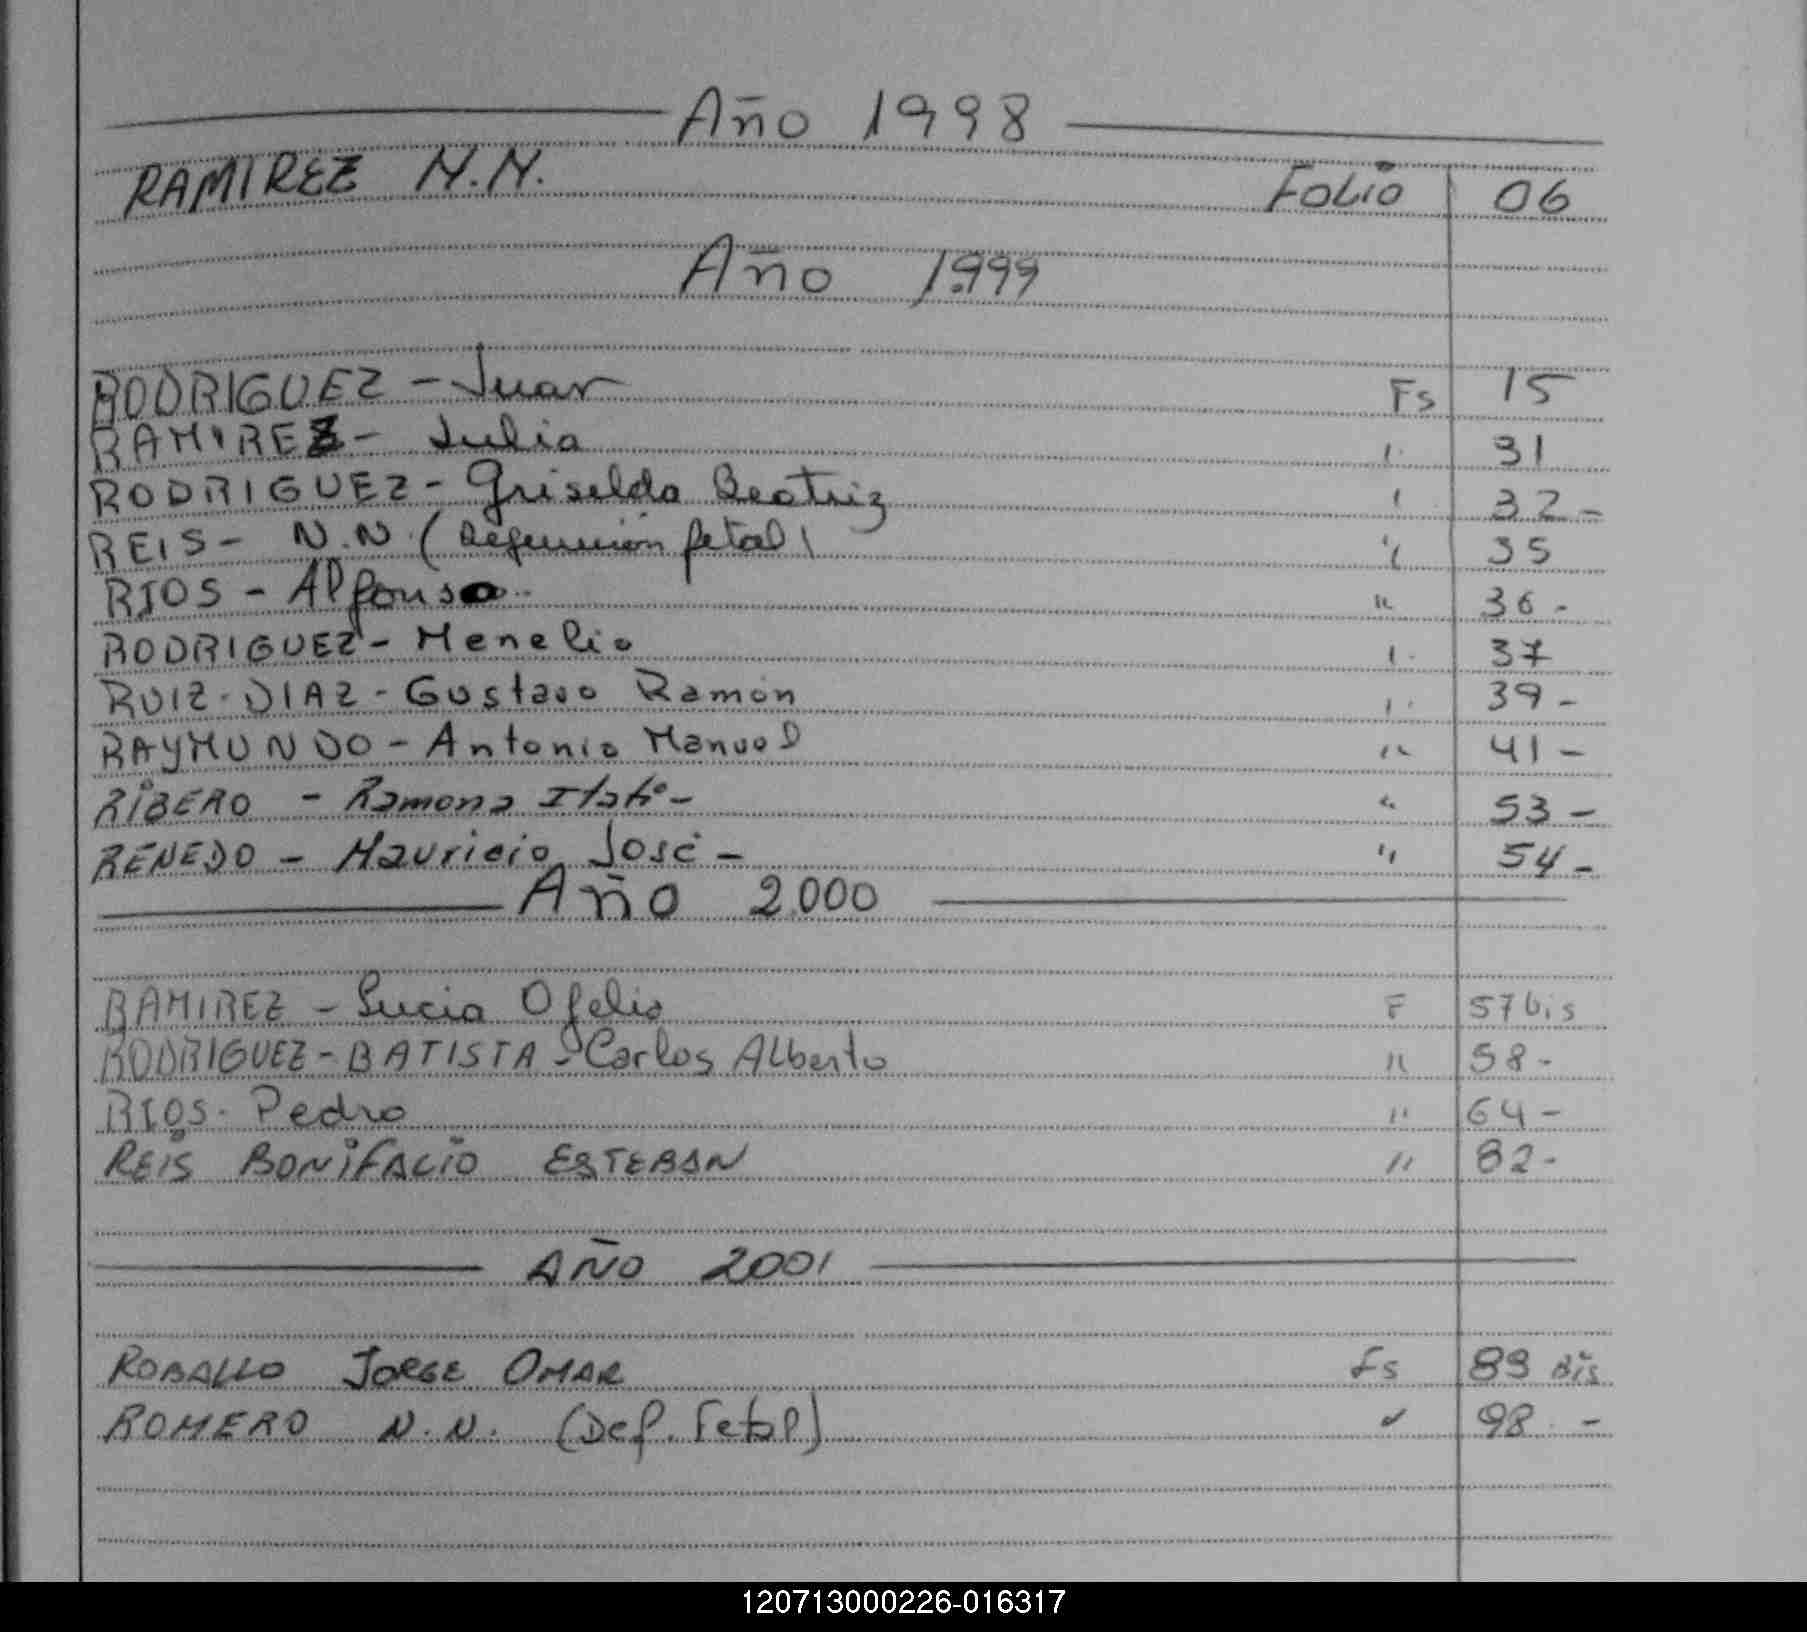 Año 1998
RAMIREZ N.N. Folio 06
Año 1.999
RODRIGUEZ - Juan Fs 15
RAMIREZ - Julia " 31
RODRIGUEZ - Griselda Beatriz " 32 -
REIS - N.N. (Defunción fetal) " 35
RIOS - Alfonso " 36 -
RODRIGUEZ - Menelio " 37
RUIZ-DIAZ - Gustavo Ramón " 39 -
RAYMUNDO - Antonio Manuel " 41 -
RIBERO - Ramona Itatí - " 53 -
RENEDO - Mauricio José - " 54 -
Año 2.000
RAMIREZ - Lucia Ofelia F 57 bis
RODRIGUEZ - BATISTA - Carlos Alberto " 58 -
RIOS - Pedro " 64 -
REIS BONIFACIO ESTEBAN " 82 -
AÑO 2001
ROBALLO JORGE OMAR Fs 89 Bis
ROMERO N.N. (Def. Fetal) " 98 -
120713000226-016317